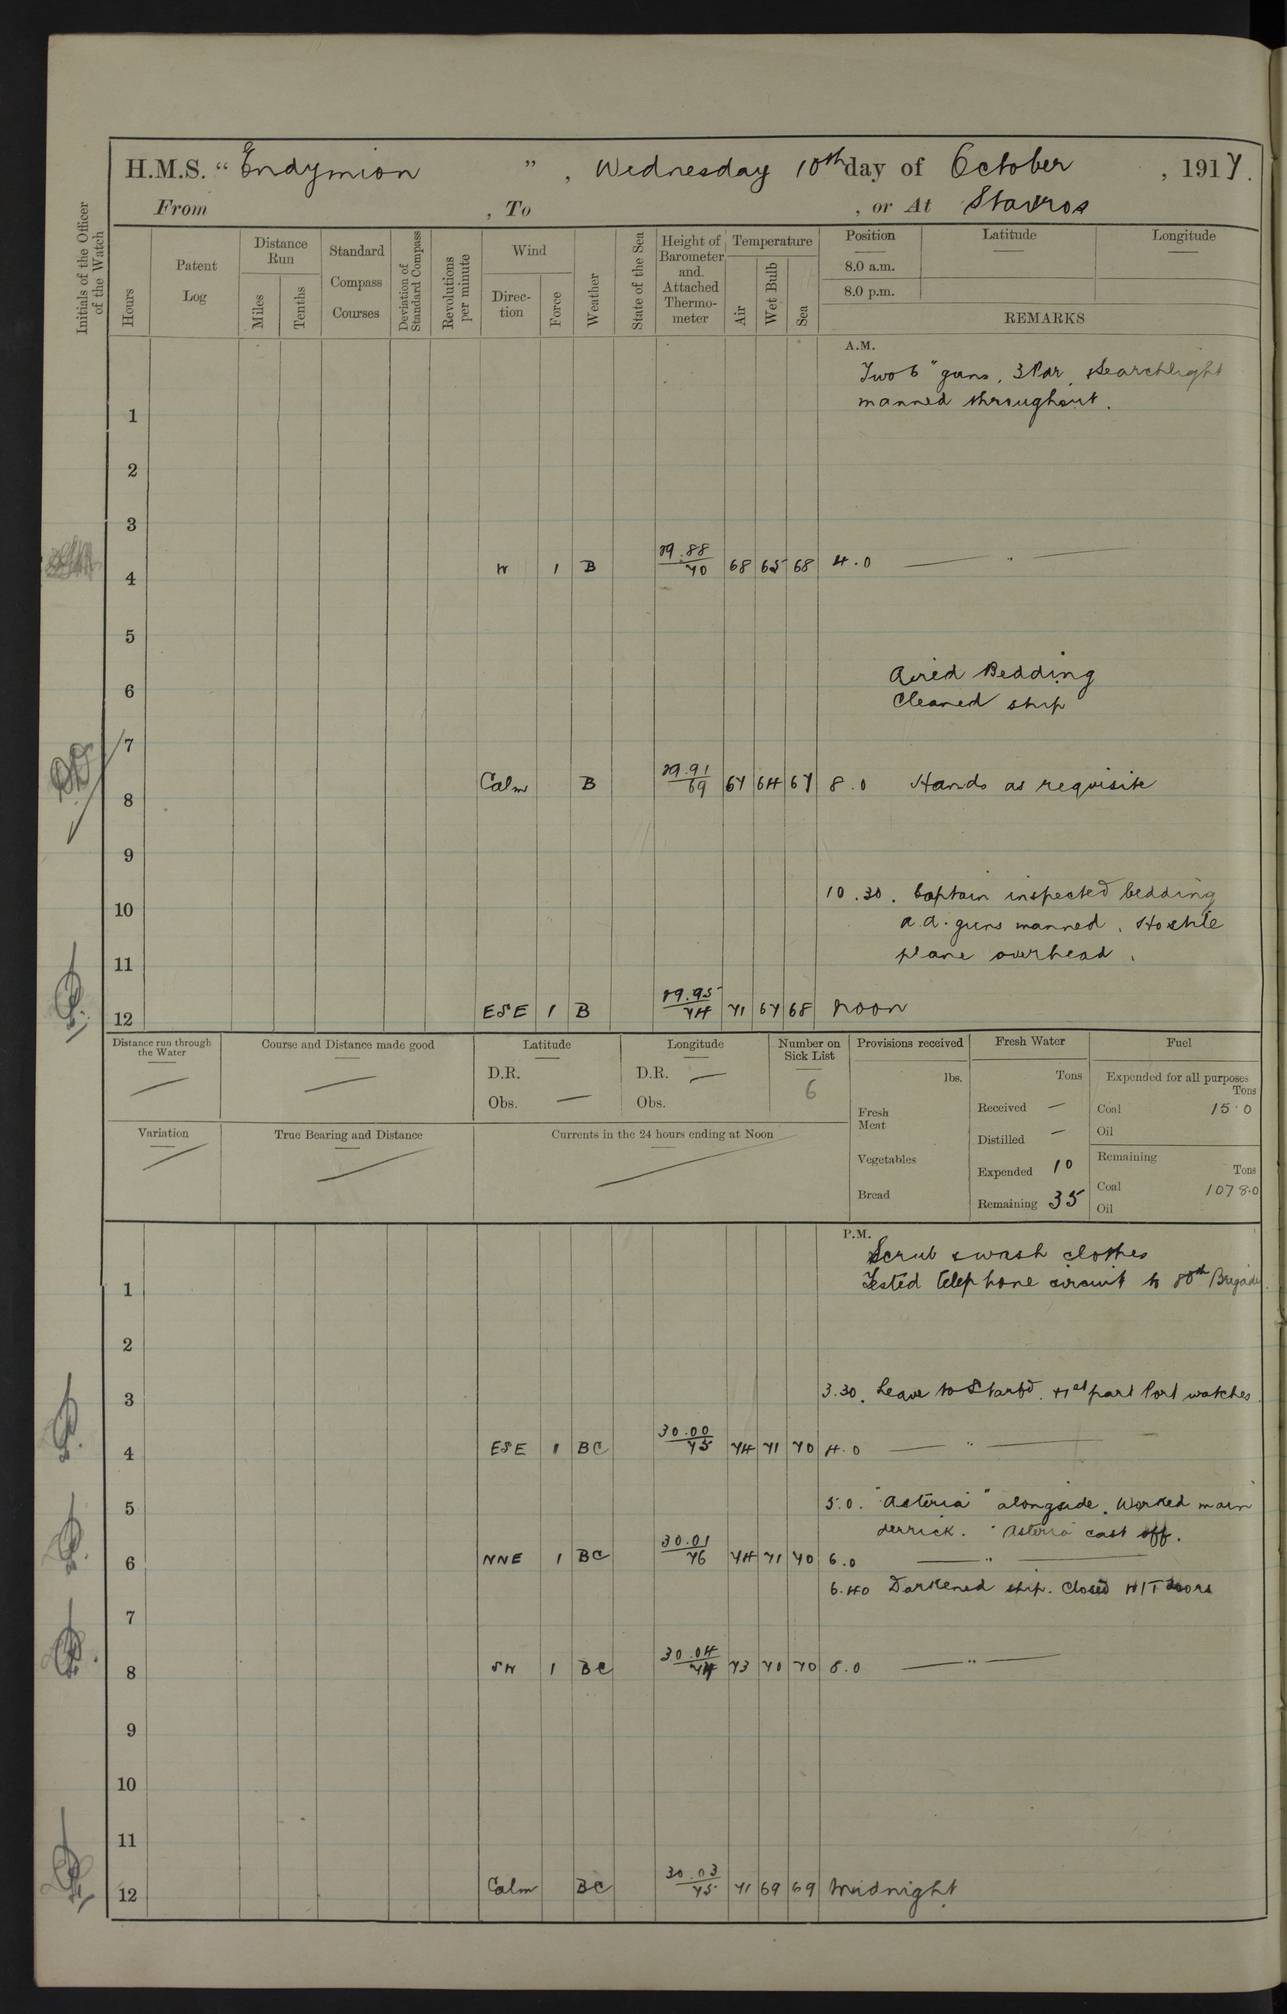 H.M.S. “ Endymion ” , Wednesday 10th day of October , 1917.
From , To , or At Stavros
Initials of the Officer of the Watch
Hours
Patent Log
Distance Run
Miles
Tenths
Standard Compass Courses
Deviation of Standard Compass
Revolutions per minute
Wind
Direc-tion
Force
Weather
State of the Sea
Height of Barometer and Attached Thermo-meter
Temperature
Air
Wet Bulb
Sea
Position
8.0 a.m.
8.0 p.m.
Latitude
Longitude
REMARKS
A.M.
Two 6" guns, 3 Pdr, Searchlight
manned throughout.
1
2
3
4 W 1 B 29.88 / 70 68 65 68 4.0 — " —
5
Aired Bedding
6
Cleaned ship
7
8 Calm B 29.91 / 69 67 64 67 8.0 Hands as requisite
9
10.30. Captain inspected bedding
10
a.a. guns manned, Hostile
plane overhead.
11
12 ESE 1 B 29.95 / 74 71 67 68 Noon
Distance run through the Water
Course and Distance made good
Latitude
D.R.
Obs. —
Longitude
D.R. —
Obs.
Number on Sick List
6
Provisions received
lbs.
Fresh Meat
Vegetables
Bread
Fresh Water
Tons
Received —
Distilled —
Expended 10
Remaining 35
Fuel
Expended for all purposes
Tons
Coal 15.0
Oil
Remaining
Tons
Coal 1078.0
Oil
Variation
True Bearing and Distance
Currents in the 24 hours ending at Noon
P.M.
Scrub & wash clothes
Tested telephone circuit to 80th Brigade
1
2
3.30. Leave to Starbd. & 1st part Port watches.
3
4 ESE 1 BC 30.00 / 75 74 71 70 4.0 — " —
5.0. "Asteria" alongside. Worked main
5
derrick. "Asteria" cast off.
6 NNE 1 BC 30.01 / 76 74 71 70 6.0 — " —
6.40 Darkened ship. Closed W/T doors
7
8 SW 1 BC 30.04 / 74 73 70 70 8.0 — " —
9
10
11
12 Calm BC 30.03 / 75 71 69 69 Midnight